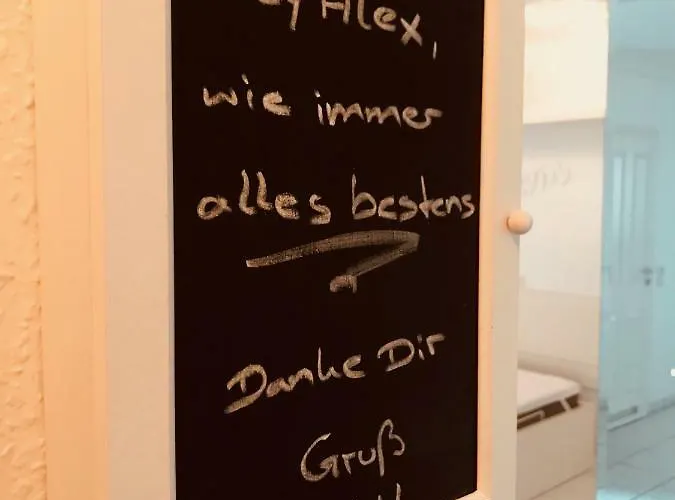 Alex,
wie immer
alles bestens
Danke Dir
Gruß